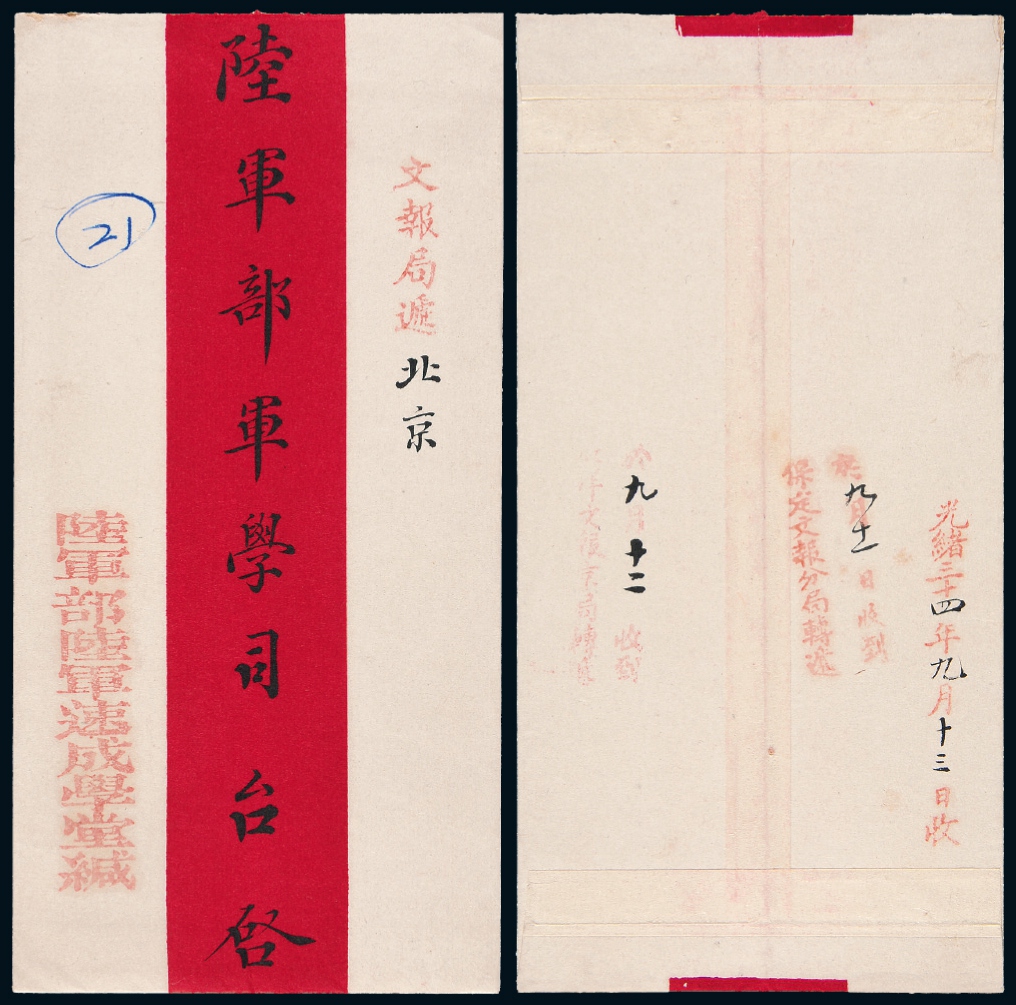 文報局遞北京
陸軍部軍學司台啓
21
陸軍部陸軍速成學堂緘
光緒三十四年九月十三日收
九月十一日收到
保定文報分局轉遞
九月十二 收到